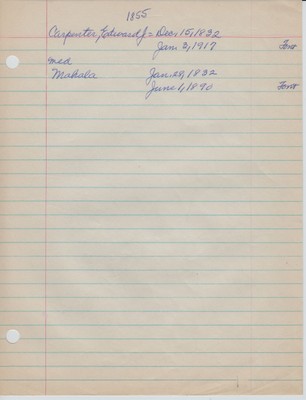 1855
Carpenter, Edward J = Dec. 15, 1832
Jan. 3, 1917 Font
med
Mahala Jan. 28, 1832
June 1, 1890 Font